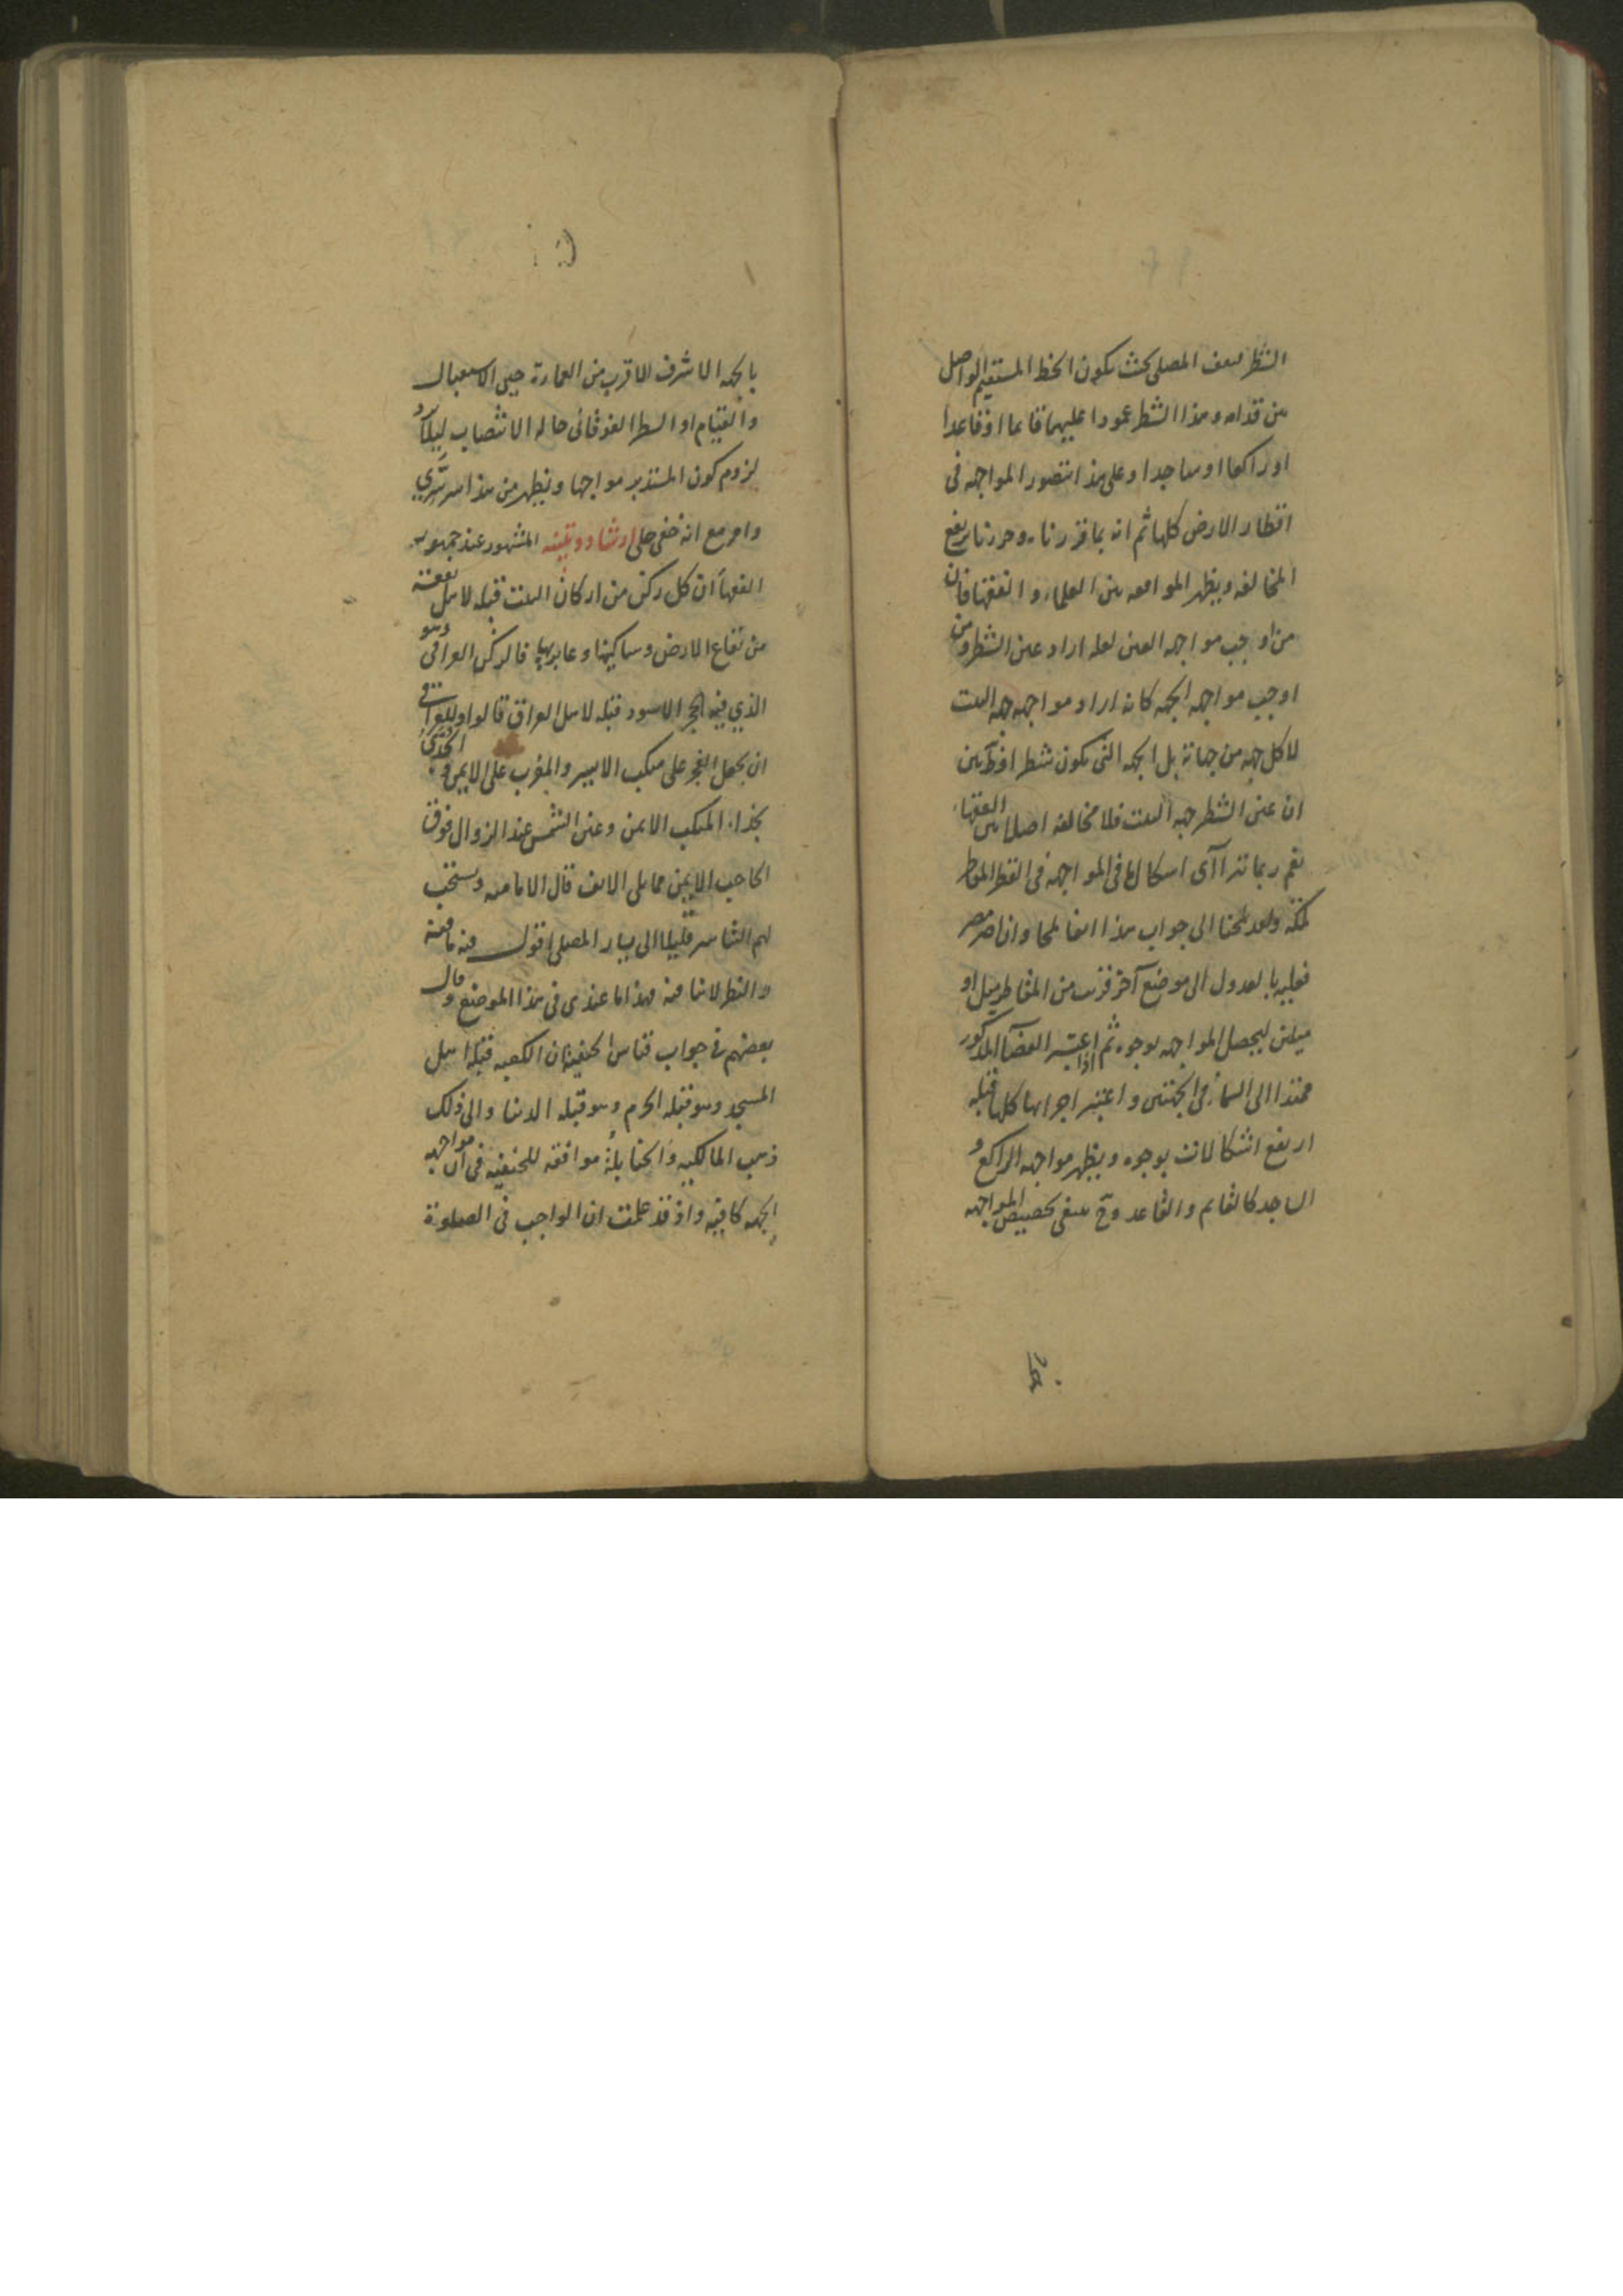 الشطر لیقف المصلی بحیث یکون الخط المستقیم الواصل
من قدامه وهذا الشطر عمودا علیهما قائما او قاعدا
او راکعا او ساجدا وعلی هذا تتصور المواجهه فی
اقطار الارض کلها ثم انه بما قررناه وحررنا یرفع
المخالفه ویظهر الموافقه بین العلماء والفقها فان
من اوجب مواجهه العین لعله اراد عین الشطر ومن
اوجب مواجهه الجهه کانه اراد مواجهه جهه البیت
لا کل جهه من جهاته بل الجهه التی یکون شطر
ان عین الشطر جهه البیت فلا مخالفه اصلا بین الفقهاء
نعم ربما تراآی اشکال فی المواجهه فی القطر المقاطر
لمکه وقد لمحنا الی جواب هذا ایضا لمحا وان اصر مصر
فعلیه بالعدول الی موضع آخر قریب من المقاطر میل او
میلین لیحصل المواجهه بوجوه ثم اذا اعتبر الفضآ المذکور
ممتدا الی السمآء فی الجهتین واعتبر اجزاءها کلها قبله
ارتفع اشکالات بوجوه ویظهر مواجهه الراکع و
الساجد کالقایم والقاعد وح ینبغی تخصیص المواجهه
بالجهه الاشرف الاقرب من العمارة حین الاستقبال
والقیام او السطر الفوقانی حاله الانتصاب لیلا یرد
لزوم کون المستدبر مواجها ویظهر من هذا سر سری
وامر مع انه خفی جلی ارشاد وتنبیه المشهور عند جمهور
الفقهآ ان کل رکن من ارکان البیت قبله لاهل بقعته
من بقاع الارض وساکنیها وعابریها فالرکن العراقی وهو
الذی فیه الحجر الاسود قبله لاهل العراق قالوا وللعراقی
ان یجعل الفجر علی منکب الایسر والمغرب علی الایمن والجدی
بحذاء المنکب الایمن وعین الشمس عند الزوال فوق
الحاجب الایمن مما یلی الانف قال الامامیه ویستحب
لهم التیاسر قلیلا الی یسار المصلی اقول فیه ما فیه
والنظر لا ینافیه فهذا ما عندی فی هذا الموضع وقال
بعضهم فی جواب قیاس الحنفیه ان الکعبه قبله اهل
المسجد وهو قبله الحرم وهو قبله الدنیا والی ذلک
ذهب المالکیه والحنابله موافقه للحنفیه فی ان مواجهه
الجهه کافیه واذ قد علمت ان الواجب فی الصلوة